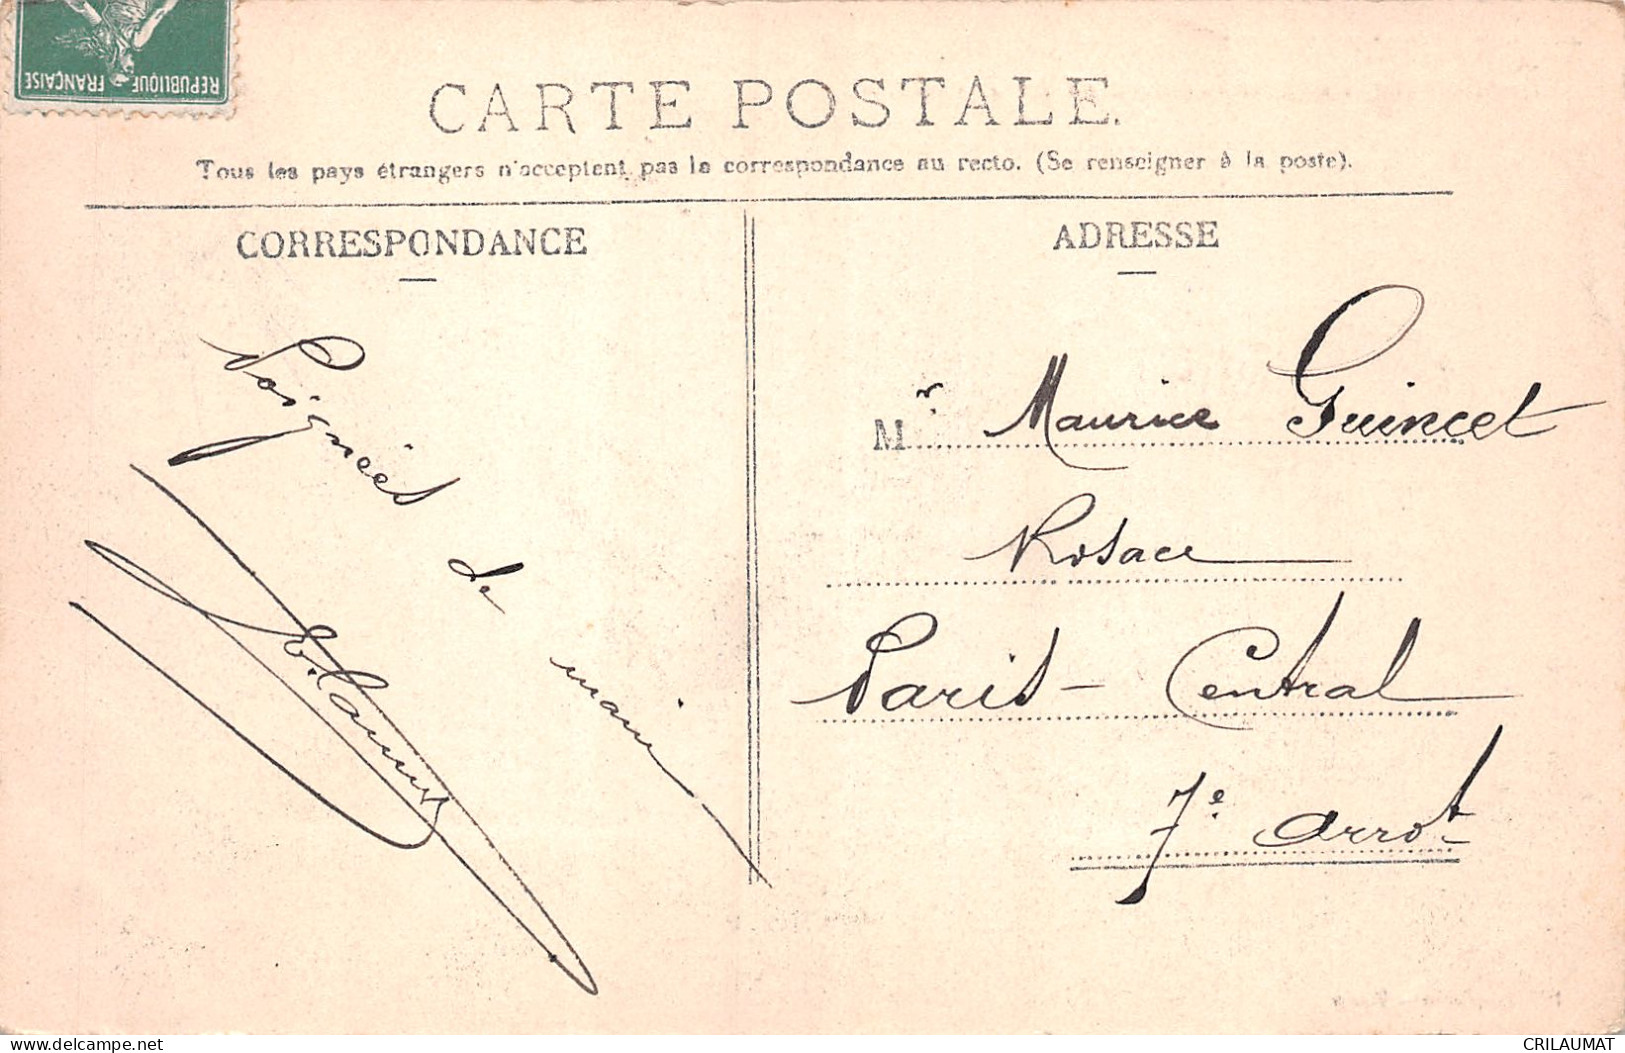 REPUBLIQUE FRANÇAISE
CARTE POSTALE.
Tous les pays étrangers n'acceptent pas la correspondance au recto. (Se renseigner à la poste).
CORRESPONDANCE
Poignées
de
main
ADRESSE
Mr. Maurice Guincet
Rosace
Paris - Central
7e. arrot
www.delcampe.net
CRILAUMAT